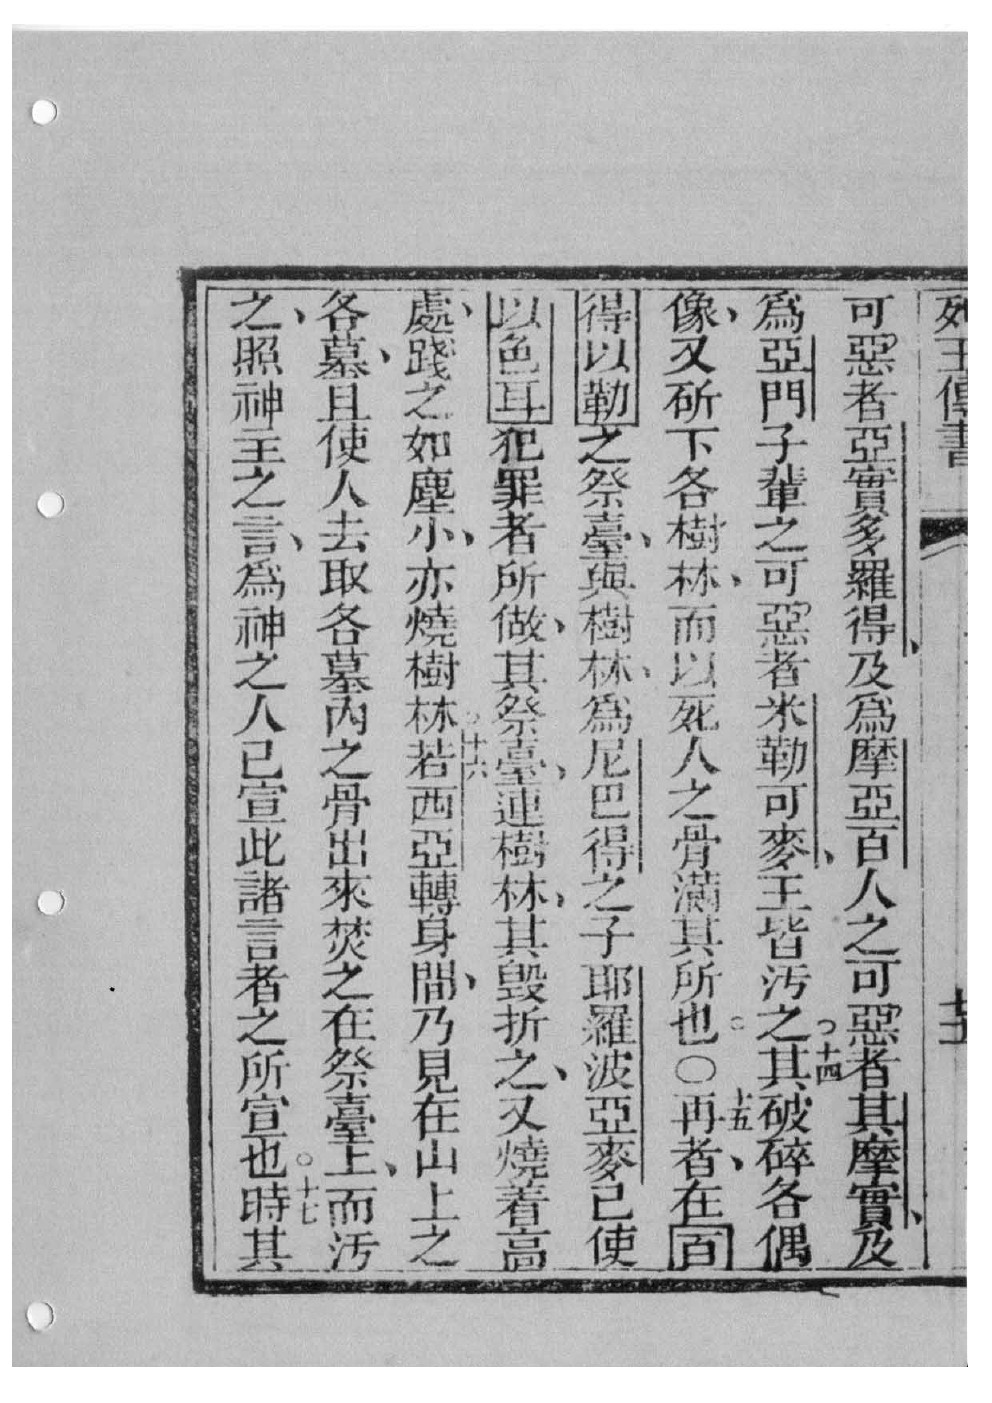 列王傳書
可惡者亞實多羅得、及爲摩亞百人之可惡者其摩實、及
爲亞門子輩之可惡者米勒可麥、王皆汚之。十四其破碎各偶
像、又斫下各樹林、而以死人之骨滿其所也。○十五再者、在百
得以勒之祭臺、與樹林、爲尼巴得之子耶羅波亞麥已使
以色耳犯罪者所做、其祭臺、連樹林、其毀折之、又燒着高
處、踐之如塵小、亦燒樹林。十六若西亞轉身間、乃見在山上之
各墓、且使人去取各墓內之骨出來焚之在祭臺上、而汚
之、照神王之言、爲神之人已宣此諸言者之所宣也。十七時其